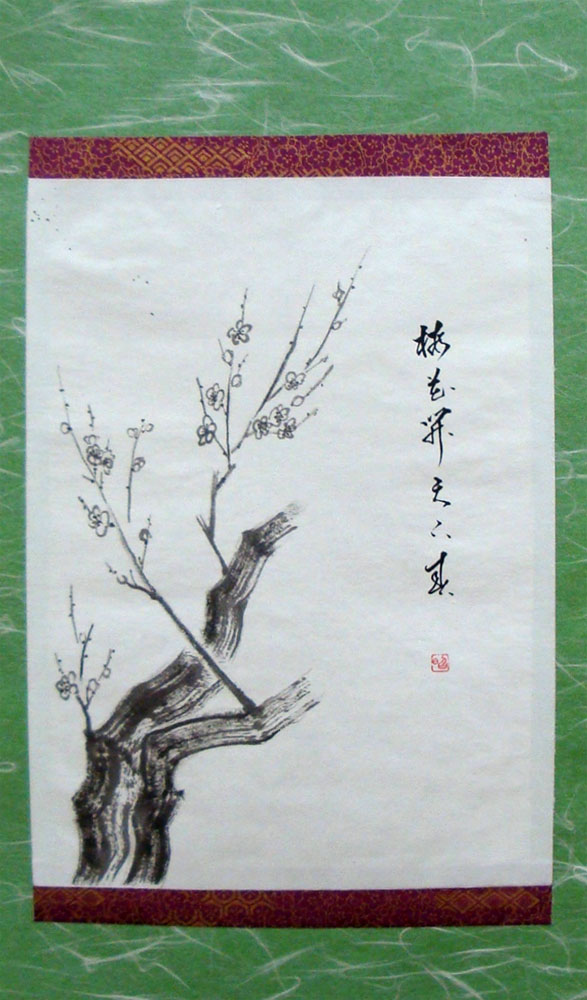 梅花開天下春